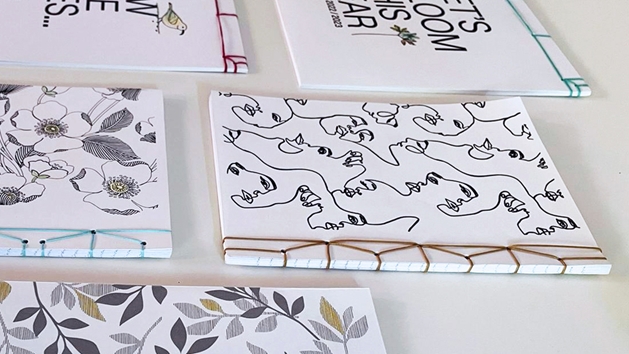 W
E
ES...
ET'S
LOOM
HIS
EAR
2022 / 2023